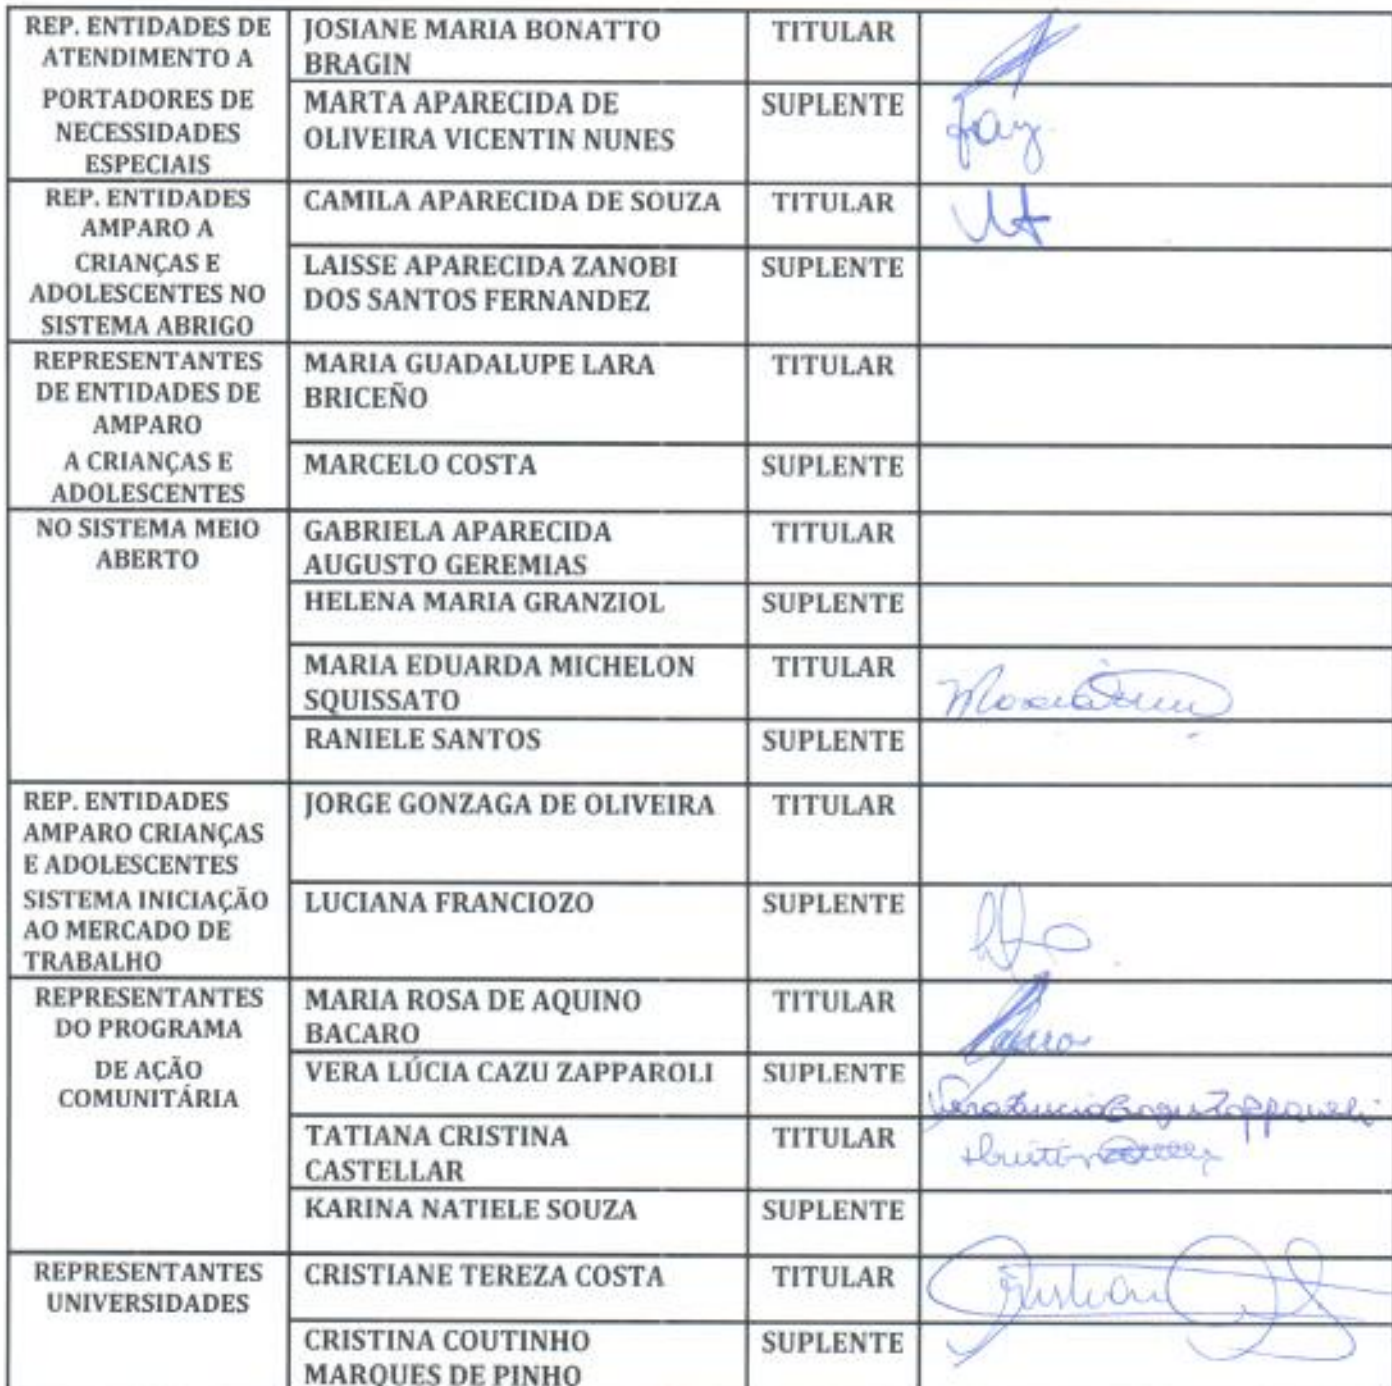 REP. ENTIDADES DE
ATENDIMENTO A
PORTADORES DE
NECESSIDADES
ESPECIAIS
JOSIANE MARIA BONATTO
BRAGIN
TITULAR
MARTA APARECIDA DE
OLIVEIRA VICENTIN NUNES
SUPLENTE
REP. ENTIDADES
AMPARO A
CRIANÇAS E
ADOLESCENTES NO
SISTEMA ABRIGO
CAMILA APARECIDA DE SOUZA
TITULAR
LAISSE APARECIDA ZANOBI
DOS SANTOS FERNANDEZ
SUPLENTE
REPRESENTANTES
DE ENTIDADES DE
AMPARO
A CRIANÇAS E
ADOLESCENTES
MARIA GUADALUPE LARA
BRICEÑO
TITULAR
MARCELO COSTA
SUPLENTE
NO SISTEMA MEIO
ABERTO
GABRIELA APARECIDA
AUGUSTO GEREMIAS
TITULAR
HELENA MARIA GRANZIOL
SUPLENTE
MARIA EDUARDA MICHELON
SQUISSATO
TITULAR
RANIELE SANTOS
SUPLENTE
REP. ENTIDADES
AMPARO CRIANÇAS
E ADOLESCENTES
SISTEMA INICIAÇÃO
AO MERCADO DE
TRABALHO
JORGE GONZAGA DE OLIVEIRA
TITULAR
LUCIANA FRANCIOZO
SUPLENTE
REPRESENTANTES
DO PROGRAMA
DE AÇÃO
COMUNITÁRIA
MARIA ROSA DE AQUINO
BACARO
TITULAR
VERA LÚCIA CAZU ZAPPAROLI
SUPLENTE
Vera Lucia Cazu Zapparoli
TATIANA CRISTINA
CASTELLAR
TITULAR
KARINA NATIELE SOUZA
SUPLENTE
REPRESENTANTES
UNIVERSIDADES
CRISTIANE TEREZA COSTA
TITULAR
CRISTINA COUTINHO
MARQUES DE PINHO
SUPLENTE